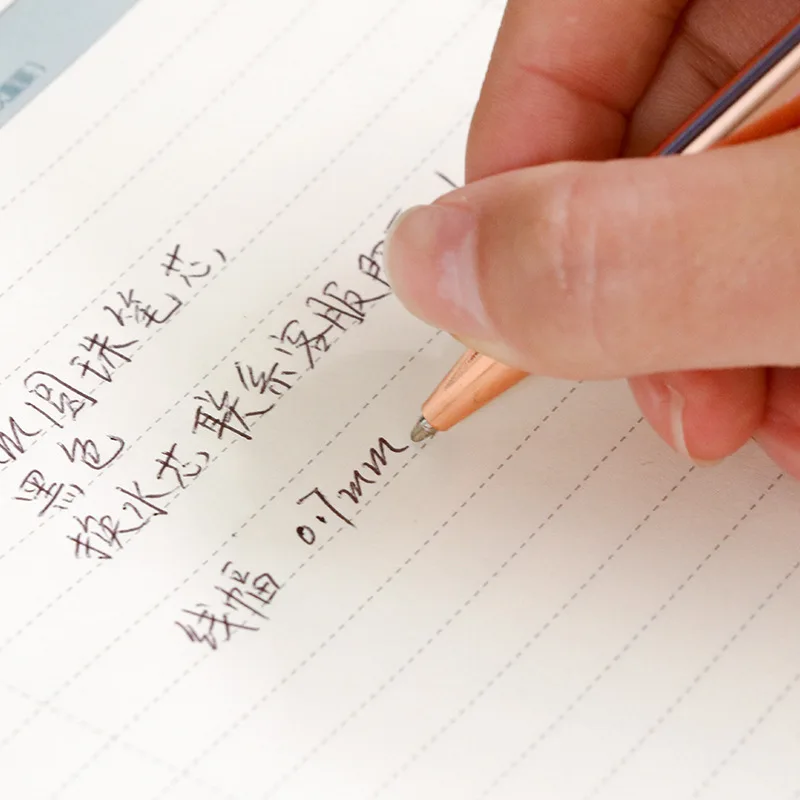 m圆珠笔芯,
黑色
换水芯联系客服
线幅 0.7mm